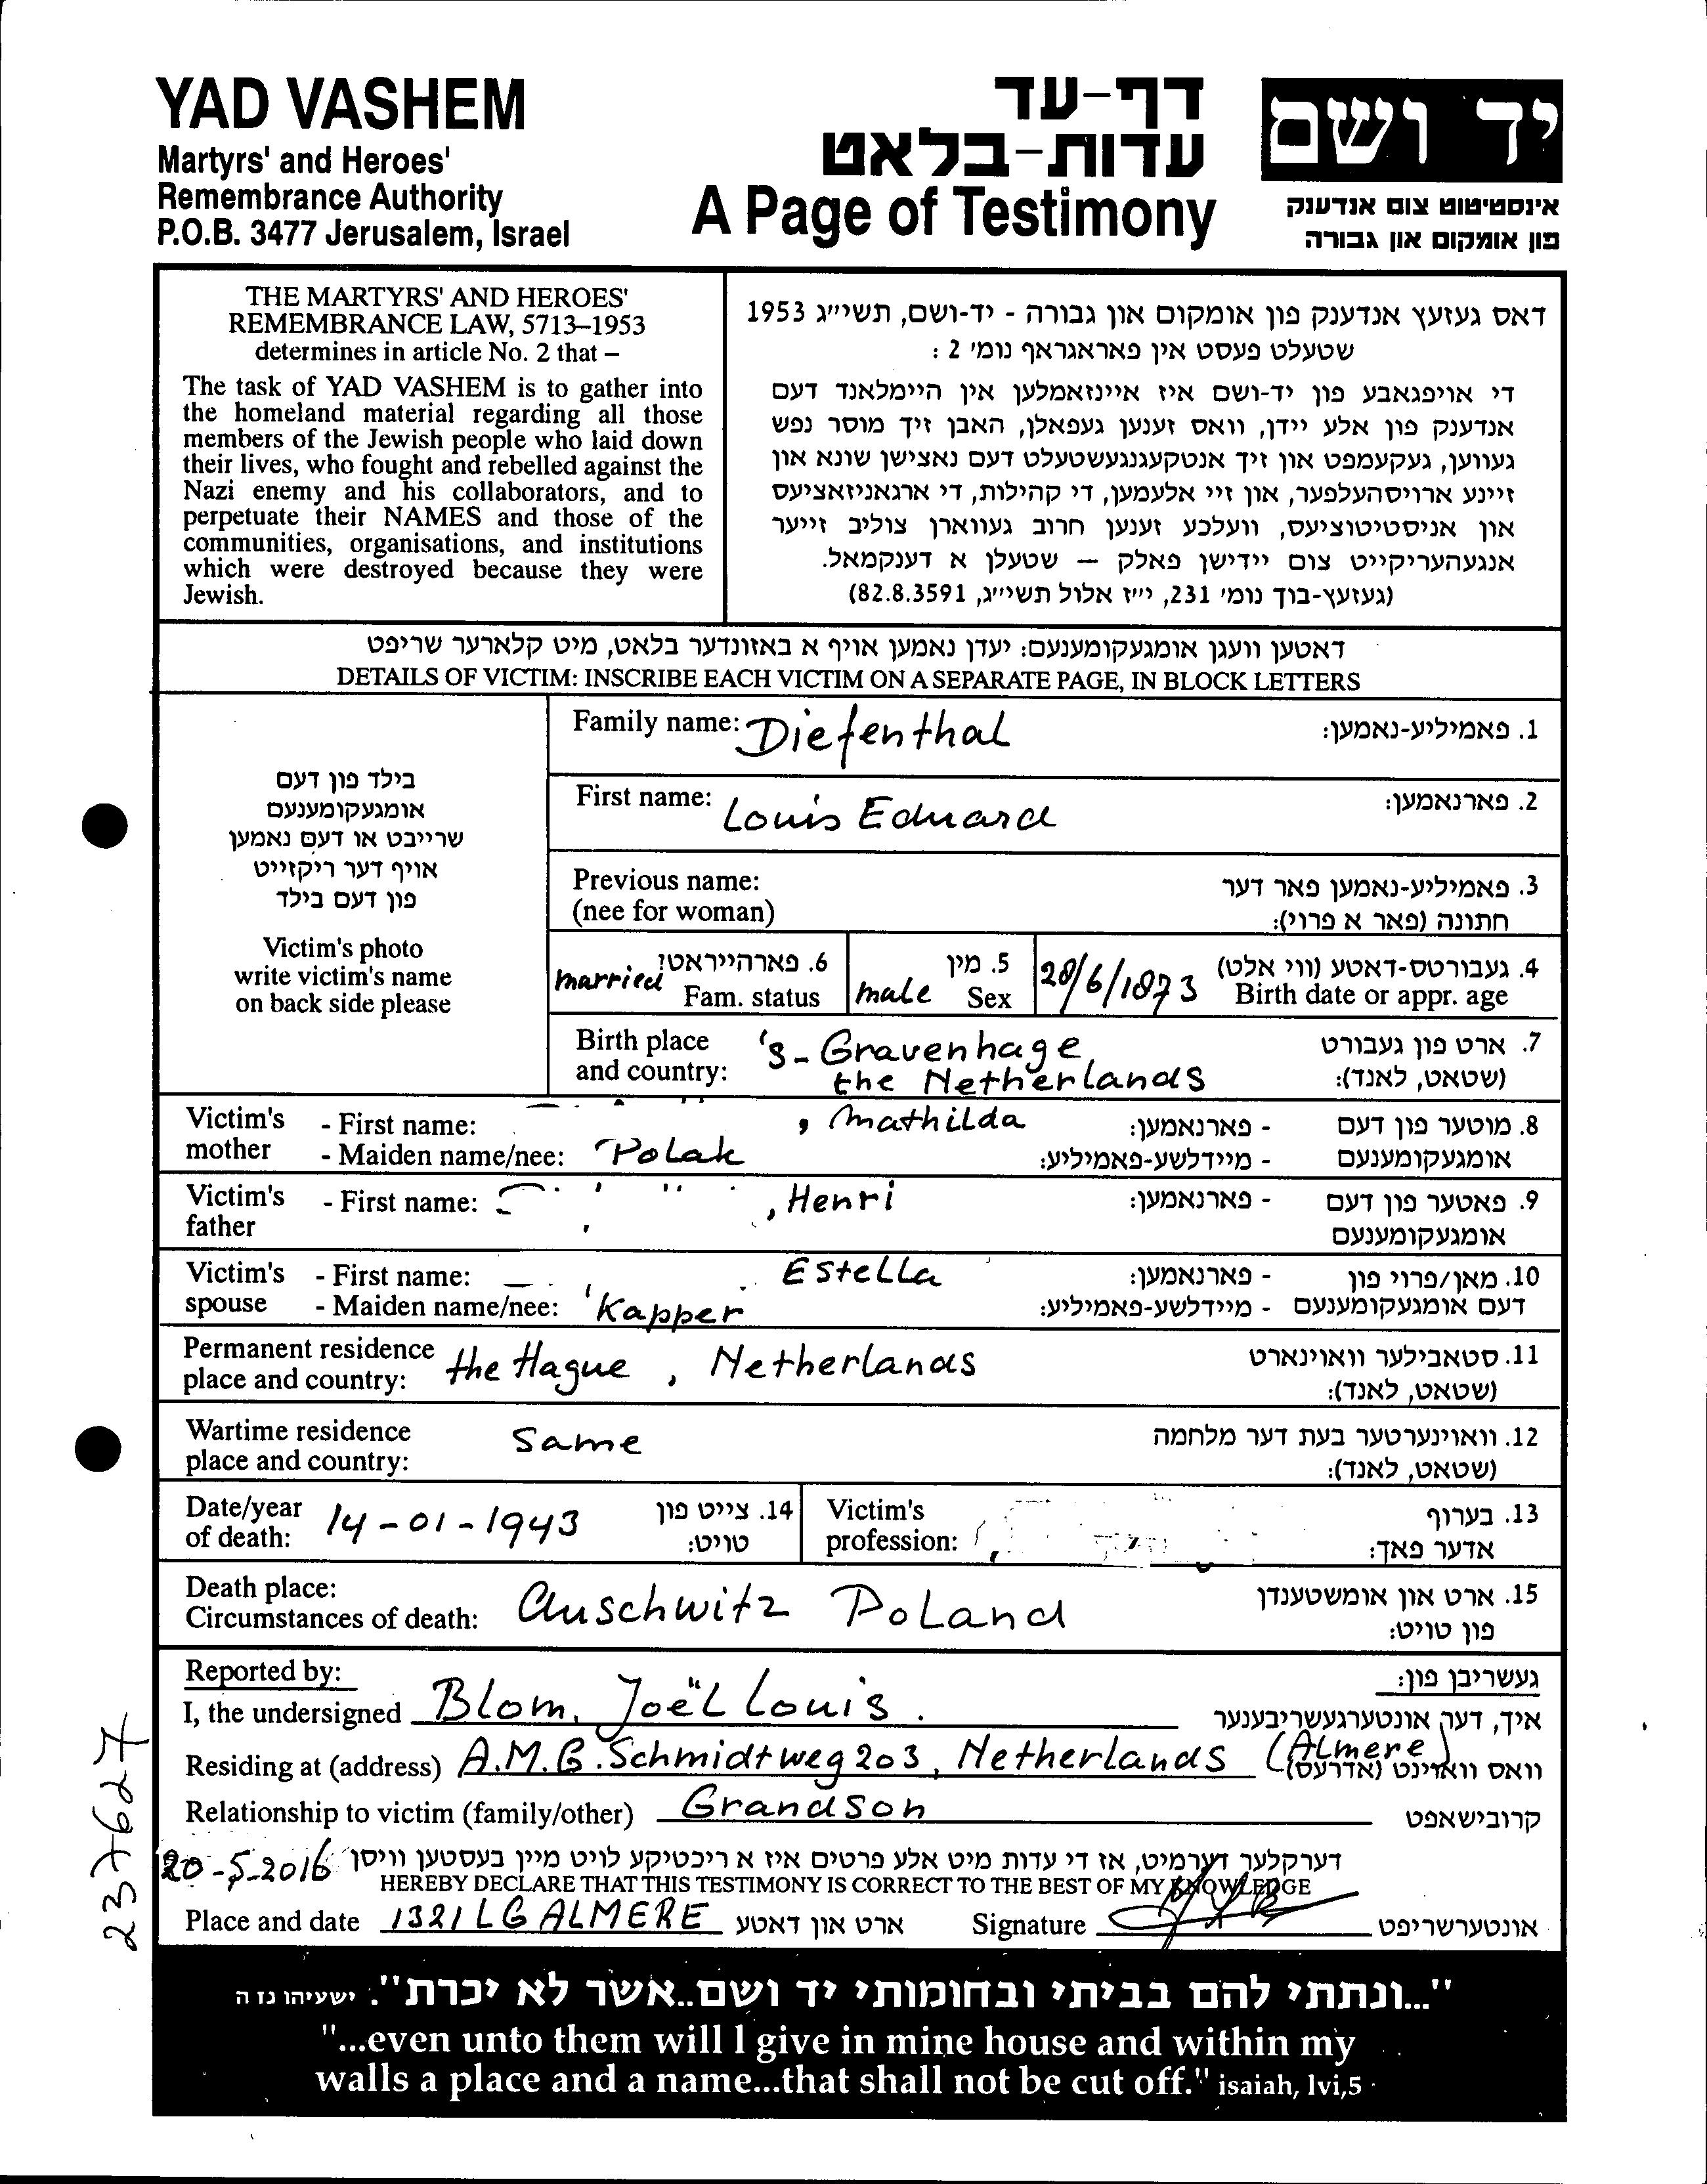 YAD VASHEM
Martyrs' and Heroes'
Remembrance Authority
P.O.B. 3477 Jerusalem, Israel
דף-עד
עדות-בלאט
A Page of Testimony
יד ושם
אינסטיטוט צום אנדענק
פון אומקום און גבורה
THE MARTYRS' AND HEROES'
REMEMBRANCE LAW, 5713–1953
determines in article No. 2 that –
The task of YAD VASHEM is to gather into
the homeland material regarding all those
members of the Jewish people who laid down
their lives, who fought and rebelled against the
Nazi enemy and his collaborators, and to
perpetuate their NAMES and those of the
communities, organisations, and institutions
which were destroyed because they were
Jewish.
דאס געזעץ אנדענק פון אומקום און גבורה - יד-ושם, תשי״ג 1953
שטעלט פעסט אין פאראגראף נומ' 2 :
די אויפגאבע פון יד-ושם איז איינזאמלען אין היימלאנד דעם
אנדענק פון אלע יידן, וואס זענען געפאלן, האבן זיך מוסר נפש
געווען, געקעמפט און זיך אנטקעגנגעשטעלט דעם נאצישן שונא און
זיינע ארויסהעלפער, און זיי אלעמען, די קהילות, די ארגאניזאציעס
און אניסטיטוציעס, וועלכע זענען חרוב געווארן צוליב זייער
אנגעהעריקייט צום יידישן פאלק – שטעלן א דענקמאל.
(געזעץ-בוך נומ' 231, י״ז אלול תשי״ג, 82.8.3591)
דאטען וועגן אומגעקומענעם: יעדן נאמען אויף א באזונדער בלאט, מיט קלארער שריפט
DETAILS OF VICTIM: INSCRIBE EACH VICTIM ON A SEPARATE PAGE, IN BLOCK LETTERS
בילד פון דעם
אומגעקומענעם
שרייבט או דעם נאמען
אויף דער ריקזייט
פון דעם בילד
Victim's photo
write victim's name
on back side please
Family name: Diefenthal 1. פאמיליע-נאמען:
First name: Louis Eduard 2. פארנאמען:
Previous name: 3. פאמיליע-נאמען פאר דער
(nee for woman) חתונה (פאר א פרוי):
married 6. פארהייראט? male 5. מין 28/6/1873 4. געבורטס-דאטע (ווי אלט)
Fam. status Sex Birth date or appr. age
Birth place 's-Gravenhage 7. ארט פון געבורט
and country: the Netherlands (שטאט, לאנד):
Victim's - First name: , Mathilda - פארנאמען: 8. מוטער פון דעם
mother - Maiden name/nee: Polak - מיידלשע-פאמיליע: אומגעקומענעם
Victim's - First name: , Henri - פארנאמען: 9. פאטער פון דעם
father אומגעקומענעם
Victim's - First name: Estella - פארנאמען: 10. מאן/פרוי פון
spouse - Maiden name/nee: Kapper - מיידלשע-פאמיליע: דעם אומגעקומענעם
Permanent residence the Hague , Netherlands 11. סטאבילער וואוינארט
place and country: (שטאט, לאנד):
Wartime residence Same 12. וואוינערטער בעת דער מלחמה
place and country: (שטאט, לאנד):
Date/year 14-01-1943 14. צייט פון Victim's 13. בערוף
of death: טויט: profession: אדער פאך:
Death place: Auschwitz Poland 15. ארט און אומשטענדן
Circumstances of death: פון טויט:
Reported by: געשריבן פון:
I, the undersigned Blom, Joël Louis. איך, דער אונטערגעשריבענער
Residing at (address) A.M.G. Schmidtweg 203, Netherlands (Almere) וואס וואוינט (אדרעס)
Relationship to victim (family/other) Grandson קרובישאפט
20-5-2016 דערקלער דערמיט, אז די עדות מיט אלע פרטים איז א ריכטיקע לויט מיין בעסטען וויסן
HEREBY DECLARE THAT THIS TESTIMONY IS CORRECT TO THE BEST OF MY KNOWLEDGE
Place and date 1321 LG ALMERE ארט און דאטע Signature אונטערשריפט
237627
"...ונתתי להם בביתי ובחומותי יד ושם..אשר לא יכרת". ישעיהו נז ה
"...even unto them will I give in mine house and within my
walls a place and a name...that shall not be cut off." isaiah, lvi,5